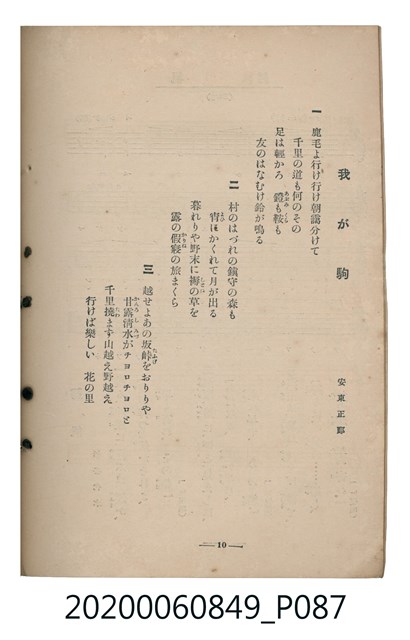 我が駒
安東正郎
一
鹿毛よ行け行け朝靄分けて
千里の道も何のその
足は輕かろ　鐙も鞍も
友のはなむけ鈴が鳴る
二
村のはづれの鎭守の森も
宵にかくれて月が出る
暮れりや野末に褥の草を
露の假寢の旅まくら
三
越せよあの坂峠をおりりや
甘露淸水がチヨロチヨロと
千里撓まず山越え野越え
行けば樂しい　花の里
—10—
20200060849_P087